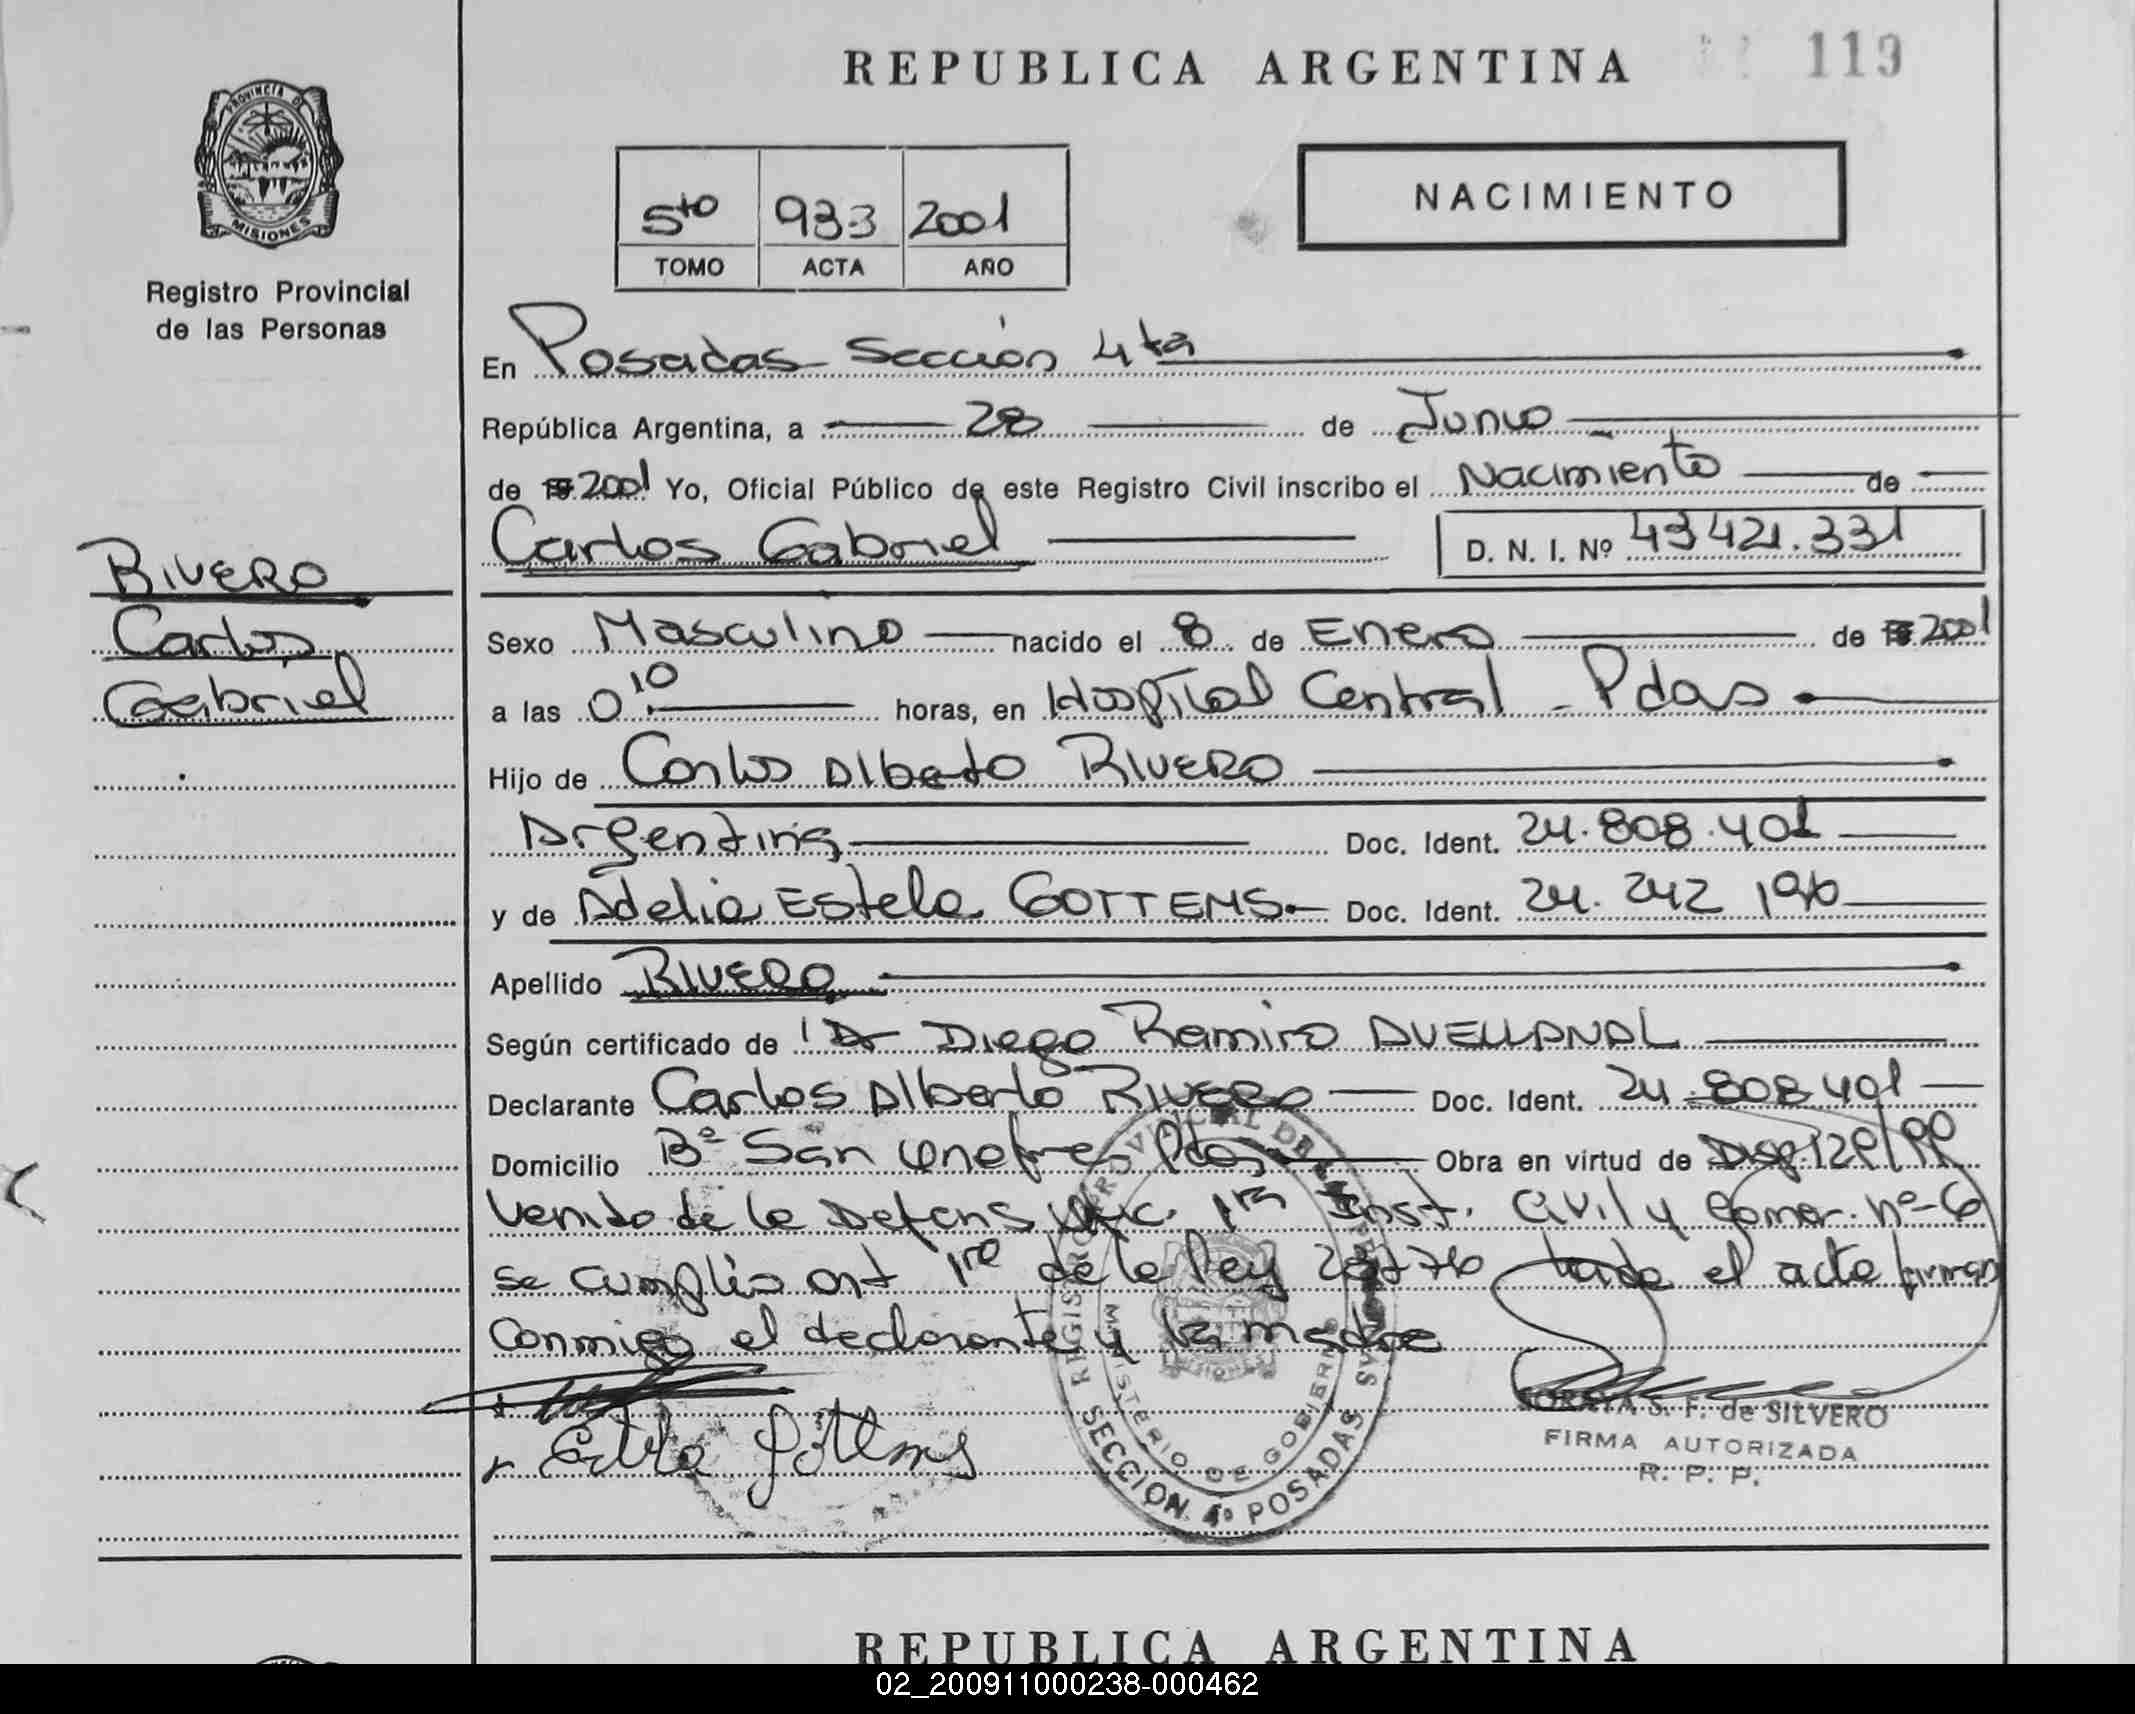 REPUBLICA ARGENTINA
119
PROVINCIA DE
MISIONES
Registro Provincial
de las Personas
5to 933 2001
TOMO ACTA AÑO
NACIMIENTO
En Posadas Sección 4ta
República Argentina, a 28 de Junio
de 2001 Yo, Oficial Público de este Registro Civil inscribo el Nacimiento de
Carlos Gabriel D. N. I. Nº 43421.331
RIVERO
Carlos
Gabriel
Sexo Masculino nacido el 8 de Enero de 2001
a las 0 10 horas, en Hospital Central - Pdas
Hijo de Carlos Alberto RIVERO
Argentina Doc. Ident. 24.808.401
y de Adelia Estela GOTTEMS Doc. Ident. 24. 242 196
Apellido RIVERO
Según certificado de Dr Diego Ramiro AVELLANAL
Declarante Carlos Alberto RIVERO Doc. Ident. 24.808 401
Domicilio Bº San Onofre Pdas Obra en virtud de Disp. 129/99
Venido de la Defens 1ra Inst. Civil y Comer. nº 6
se cumplio art 1ro de la ley 23776 todo el acto firman
Conmigo el declarante y la madre
Estela Gottems
REGISTRO PROVINCIAL DE LAS PERSONAS
MINISTERIO DE GOBIERNO
MISIONES
SECCION 4º POSADAS
SORAYA S. F. de SILVERO
FIRMA AUTORIZADA
R. P. P.
REPUBLICA ARGENTINA
02_200911000238-000462